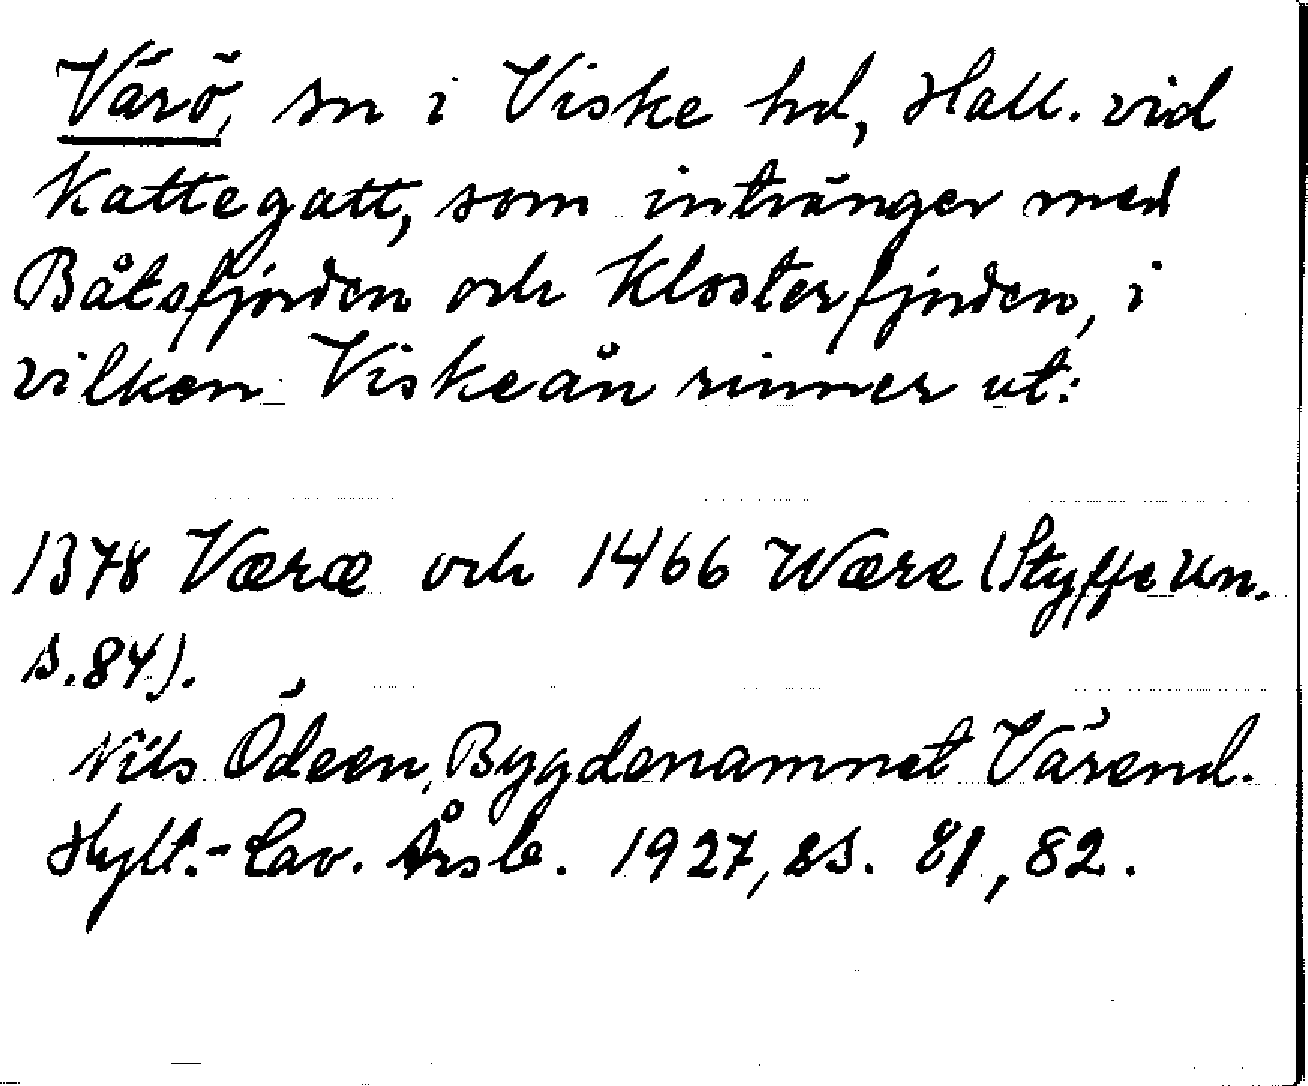 Värö, sn i Viske hd, Hall. vid
Kattegatt, som intränger med
Båtsfjorden och Klosterfjorden, i
vilken Viskeån rinner ut:
1378 Væræ och 1466 Wære (Styffe Un.
s. 84).
Nils Ödeen, Bygdenamnet Värend.
Hylt.-Cav. Årsb. 1927, ss. 81, 82.